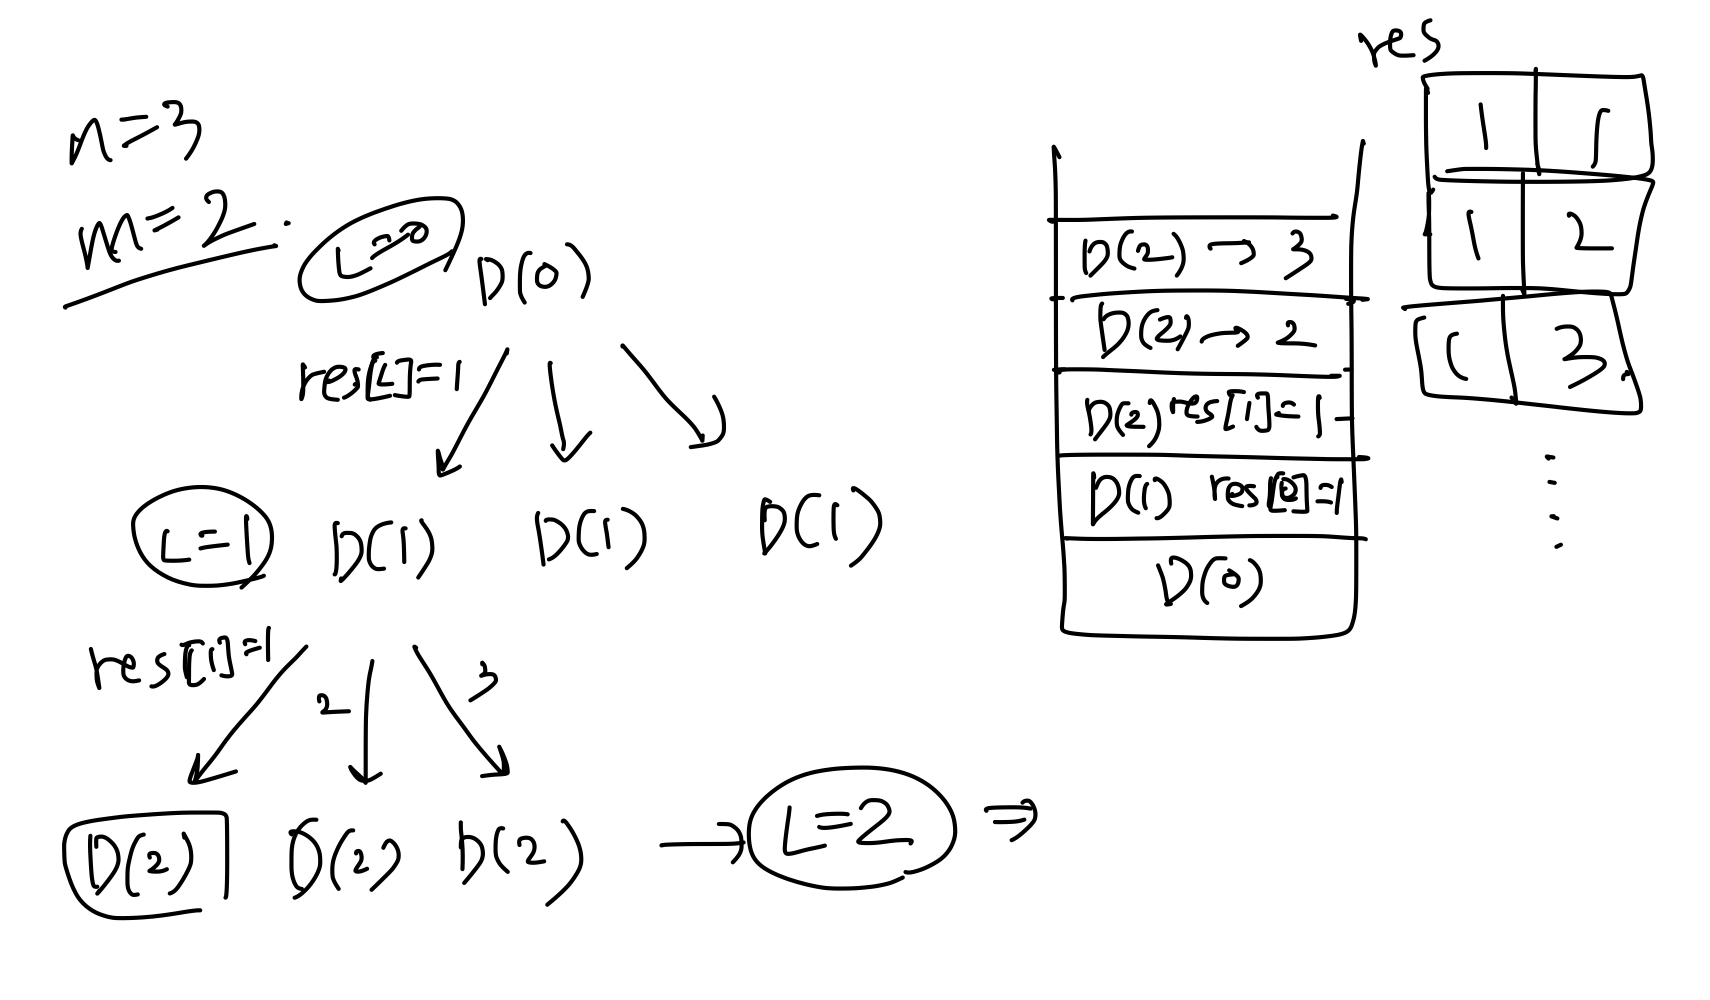 n=3
m=2.
L=0
D(0)
res[L]=1
L=1 D(1) D(1) D(1)
res[1]=1 2 3
D(2) D(2) D(2) → L=2 ⇒
D(2) → 3
D(2) → 2
D(2) res[1]=1
D(1) res[0]=1
D(0)
res
1 1
1 2
1 3